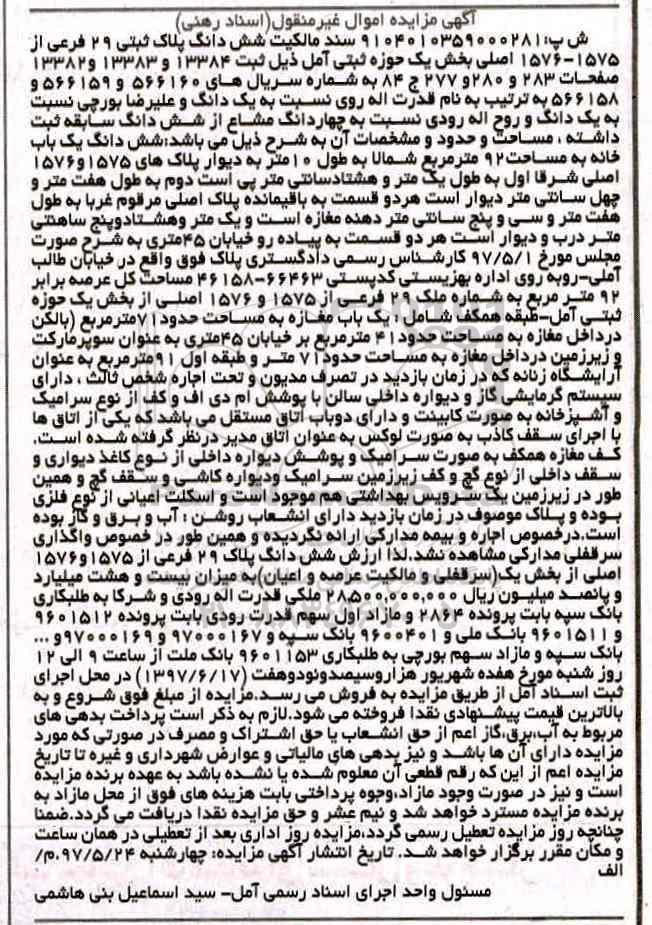 آگهی مزایده اموال غیرمنقول(اسناد رهنی)
ش پ:۹۱۰۴۰۱۰۳۵۹۰۰۰۲۸۱ سند مالکیت شش دانگ پلاک ثبتی ۲۹ فرعی از
۱۵۷۵-۱۵۷۶ اصلی بخش یک حوزه ثبتی آمل ذیل ثبت ۱۳۳۸۴ و ۱۳۳۸۳ و۱۳۳۸۲
صفحات ۲۸۳ و ۲۸۰و ۲۷۷ ج ۸۴ به شماره سریال های ۵۶۶۱۶۰ و ۵۶۶۱۵۹ و
۵۶۶۱۵۸ به ترتیب به نام قدرت اله روی نسبت به یک دانگ و علیرضا بورچی نسبت
به یک دانگ و روح اله رودی نسبت به چهاردانگ مشاع از شش دانگ سابقه ثبت
داشته ، مساحت و حدود و مشخصات آن به شرح ذیل می باشد:شش دانگ یک باب
خانه به مساحت۹۲ مترمربع شمالا به طول ۱۰متر به دیوار پلاک های ۱۵۷۵و۱۵۷۶
اصلی شرقا اول به طول یک متر و هشتادسانتی متر پی است دوم به طول هفت متر و
چهل سانتی متر دیوار است هردو قسمت به باقیمانده پلاک اصلی مرقوم غربا به طول
هفت متر و سی و پنج سانتی متر دهنه مغازه است و یک متر وهشتادوپنج ساهنتی
متر درب و دیوار است هر دو قسمت به پیاده رو خیابان ۴۵متری به شرح صورت
مجلس مورخ ۹۷/۵/۱ کارشناس رسمی دادگستری پلاک فوق واقع در خیابان طالب
آملی-روبه روی اداره بهزیستی کدپستی ۶۶۴۶۳-۴۶۱۵۸ مساحت کل عرصه برابر
۹۲ متر مربع به شماره ملک ۲۹ فرعی از ۱۵۷۵ و ۱۵۷۶ اصلی از بخش یک حوزه
ثبتی آمل-طبقه همکف شامل ۱ یک باب مغازه به مساحت حدود۷۱مترمربع (بالکن
درداخل مغازه به مساحت حدود۴۱ مترمربع بر خیابان ۴۵متری به عنوان سوپرمارکت
و زیرزمین درداخل مغازه به مساحت حدود۷۱ متر و طبقه اول ۹۱مترمربع به عنوان
آرایشگاه زنانه که در زمان بازدید در تصرف مدیون و تحت اجاره شخص ثالث ، دارای
سیستم گرمایشی گاز و دیواره داخلی سالن با پوشش ام دی اف و کف از نوع سرامیک
و آشپزخانه به صورت کابینت و دارای دوباب اتاق مستقل می باشد که یکی از اتاق ها
با اجرای سقف کاذب به صورت لوکس به عنوان اتاق مدیر درنظر گرفته شده است.
کف مغازه همکف به صورت سرامیک و پوشش دیواره داخلی از نوع کاغذ دیواری و
سقف داخلی از نوع گچ و کف زیرزمین سرامیک ودیواره کاشی و سقف گچ و همین
طور در زیرزمین یک سرویس بهداشتی هم موجود است و اسکلت اعیانی از نوع فلزی
بوده و پلاک موصوف در زمان بازدید دارای انشعاب روشن : آب و برق و گاز بوده
است.درخصوص اجاره و بیمه مدارکی ارائه نگردیده و همین طور در خصوص واگذاری
سرقفلی مدارکی مشاهده نشد.لذا ارزش شش دانگ پلاک ۲۹ فرعی از ۱۵۷۵و۱۵۷۶
اصلی از بخش یک(سرقفلی و مالکیت عرصه و اعیان)به میزان بیست و هشت میلیارد
و پانصد میلیون ریال ۲۸,۵۰۰,۰۰۰,۰۰۰ ملکی قدرت اله رودی و شرکا به طلبکاری
بانک سپه بابت پرونده ۲۸۶۴ و مازاد اول سهم قدرت رودی بابت پرونده ۹۶۰۱۵۱۲
و ۹۶۰۱۵۱۱ بانک ملی و ۹۶۰۰۴۰۱ بانک سپه و ۹۷۰۰۰۱۶۷ و ۹۷۰۰۰۱۶۹و ...
بانک سپه و مازاد سهم بورچی به طلبکاری ۹۶۰۱۱۵۳ بانک ملت از ساعت ۹ الی ۱۲
روز شنبه مورخ هفده شهریور هزاروسیصدونودوهفت (۱۳۹۷/۶/۱۷) در محل اجرای
ثبت اسناد آمل از طریق مزایده به فروش می رسد.مزایده از مبلغ فوق شروع و به
بالاترین قیمت پیشنهادی نقدا فروخته می شود.لازم به ذکر است پرداخت بدهی های
مربوط به آب،برق،گاز اعم از حق انشعاب یا حق اشتراک و مصرف در صورتی که مورد
مزایده دارای آن ها باشد و نیز بدهی های مالیاتی و عوارض شهرداری و غیره تا تاریخ
مزایده اعم از این که رقم قطعی آن معلوم شده یا نشده باشد به عهده برنده مزایده
است و نیز در صورت وجود مازاد،وجوه پرداختی بابت هزینه های فوق از محل مازاد به
برنده مزایده مسترد خواهد شد و نیم عشر و حق مزایده نقدا دریافت می گردد.ضمنا
چنانچه روز مزایده تعطیل رسمی گردد،مزایده روز اداری بعد از تعطیلی در همان ساعت
و مکان مقرر برگزار خواهد شد. تاریخ انتشار آگهی مزایده: چهارشنبه ۹۷/۵/۲۴.م/
الف
مسئول واحد اجرای اسناد رسمی آمل- سید اسماعیل بنی هاشمی